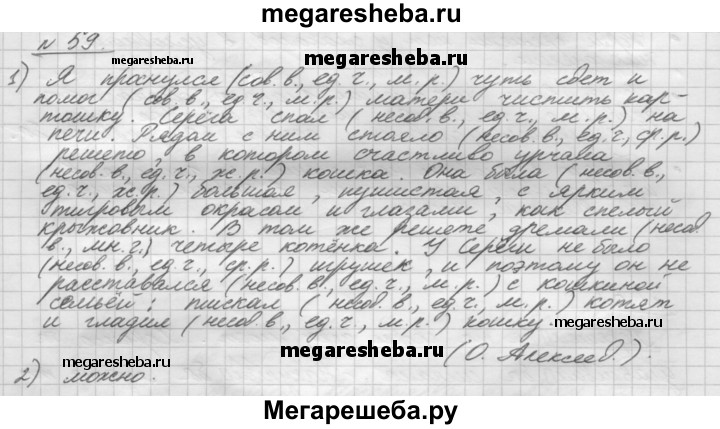 megaresheba.ru
№ 59.
megaresheba.ru
megaresheba.ru
1) Я проснулся (сов. в., ед. ч., м. р.) чуть свет и
помог (сов. в., ед. ч., м. р.) матери чистить кар-
тошку. Серёга спал (несов. в., ед. ч., м. р.) на
печи. Рядом с ним стояло (несов. в., ед. ч., ср. р.)
решето, в котором счастливо урчала
(несов. в., ед. ч., ж. р.) кошка. Она была (несов. в.,
ед. ч., ж. р.) большая, пушистая, с ярким
тигровым окрасом и глазами, как спелый
крыжовник. В том же решете дремали (несов.
в., мн. ч.) четыре котёнка. У Серёги не было
(несов. в., ед. ч., ср. р.) игрушек, и поэтому он не
расставался (несов. в., ед. ч., м. р.) с кошкиной
семьёй: пискал (несов. в., ед. ч., м. р.) котят
и гладил (несов. в., ед. ч., м. р.) кошку.
megaresheba.ru
megaresheba.ru
megaresheba.ru
(О. Алексеев).
2) можно.
Мегарешеба.ру